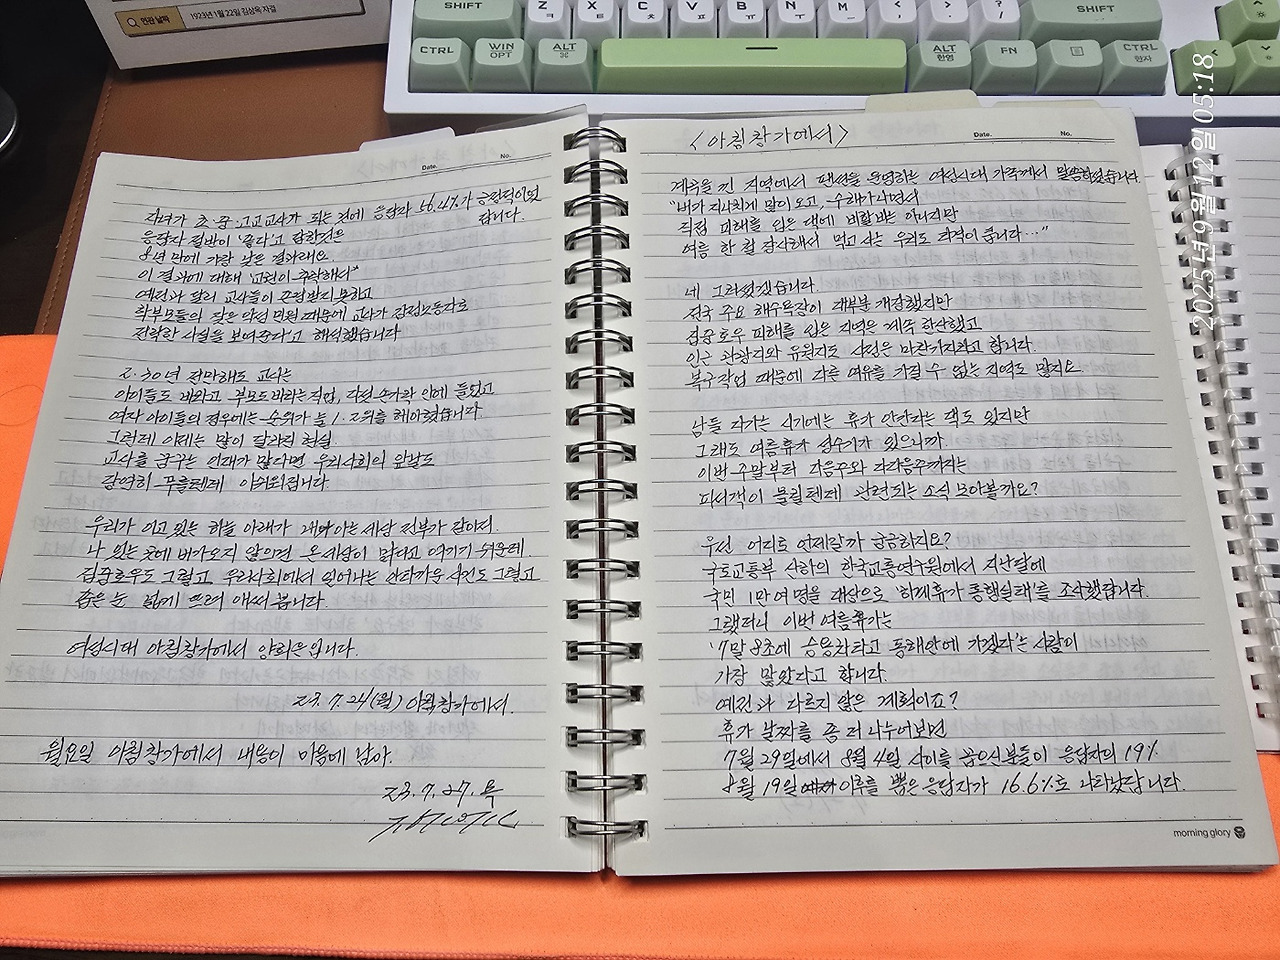 연관 날짜
1923년 1월 22일 김상옥 자결
SHIFT
Z X C V B N M < > ?
ㅋ ㅌ ㅊ ㅍ ㅠ ㅜ ㅡ , . /
SHIFT
CTRL
WIN
OPT
ALT
⌘
ALT
한영
FN
CTRL
한자
2025년 9월 12일 05:18
Date.
No.
자녀가 초·중·고교 교사가 되는 것에 응답자 46.4%가 긍정적이었
답니다.
응답자 절반이 '좋다'고 답한것은
8년 만에 가장 낮은 결과래요
이 결과에 대해 "교권이 추락해서"
예전과 달리 교사들이 존경받지 못하고
학부모들의 잦은 악성 민원 때문에 교사가 감정노동자로
전락한 사실을 보여준다'고 해석했습니다
2·30년 전만해도 교사는
아이들도 바라고 부모도 바라는 직업, 다섯 손가락 안에 들었고
여자 아이들의 경우에는 순위가 늘 1·2위를 헤아렸습니다
그러데 이제는 많이 달라진 현실.
교사를 꿈꾸는 인재가 많다면 우리사회의 앞날도
강연히 푸를텐데 아쉬워집니다
우리가 이고 있는 하늘 아래가 내가 아는 세상 전부가 같아서.
나 있는 곳에 비가 오지 않으면 온 세상이 맑다고 여기기 쉬운데
집중호우도 그렇고, 우리사회에서 일어나는 안타까운 사건도 그렇고
좁은 눈 넓게 뜨려 애써 봅니다.
여성시대 아침창가에서 양희은입니다.
23.7.24(월) 아침창가에서.
월요일 아침창가에서 내용이 마음에 남아.
23.7.27.목
<아침창가에서>
Date.
No.
계곡을 낀 지역에서 팬션을 운영하는 여성시대 가족께서 말씀하셨습니다.
"비가 지나치게 많이 오고, 수해가 나면서
직접 피해를 입은 댁에 비할바는 아니지만
여름 한 철 장사해서 먹고 사는 우리도 걱정이 큽니다…"
네 그러셨겠습니다
전국 주요 해수욕장이 대부분 개장했지만
집중호우 피해를 입은 지역은 계속 한산했고
인근 관광지와 유원지도 사정은 마찬가지라고 합니다.
복구작업 때문에 다른 여유를 가질 수 없는 지역도 많지요
남들 다가는 시기에는 휴가 안간다는 댁도 있지만
그래도 여름휴가 성수기가 있으니까
이번 주말부터 다음주와 다다음주까지는
피서객이 몰릴텐데 관련되는 소식 모아볼까요?
우선 어디로 언제갈까 궁금하지요?
국토교통부 산하의 한국교통연구원에서 지난달에
국민 1만 여 명을 대상으로 '하계휴가 통행실태'를 조사했답니다.
그랬더니 이번 여름휴가는
'7말 8초에 승용차타고 동해안에 가겠다'는 사람이
가장 많았다고 합니다.
예전과 다르지 않은 계획이죠?
휴가 날짜를 좀 더 나누어보면
7월 29일에서 8월 4일 사이를 꼽으신분들이 응답자의 19%
8월 19일 이후를 뽑은 응답자가 16.6%로 나타났답니다.
morning glory